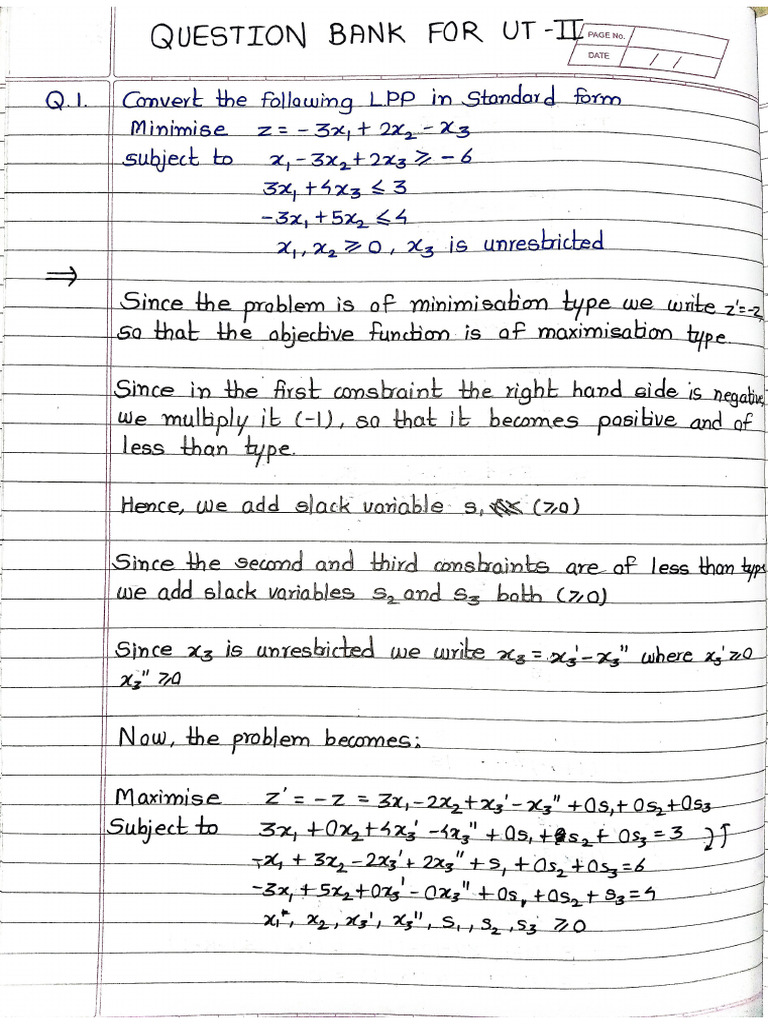 QUESTION BANK FOR UT-II
PAGE No.
DATE / /
Q.1. Convert the following LPP in Standard form
Minimise z = -3x₁ + 2x₂ - x₃
subject to x₁ - 3x₂ + 2x₃ ≥ -6
3x₁ + 4x₃ ≤ 3
-3x₁ + 5x₂ ≤ 4
x₁, x₂ ≥ 0, x₃ is unrestricted
⇒
Since the problem is of minimisation type we write z' = -z,
so that the objective function is of maximisation type.
Since in the first constraint the right hand side is negative
we multiply it (-1), so that it becomes positive and of
less than type.
Hence, we add slack variable s₁ (≥0)
Since the second and third constraints are of less than type
we add slack variables s₂ and s₃ both (≥0)
Since x₃ is unrestricted we write x₃ = x₃' - x₃" where x₃' ≥ 0
x₃" ≥ 0
Now, the problem becomes;
Maximise z' = -z = 3x₁ - 2x₂ + x₃' - x₃" + 0s₁ + 0s₂ + 0s₃
Subject to 3x₁ + 0x₂ + 4x₃' - 4x₃" + 0s₁ + s₂ + 0s₃ = 3
-x₁ + 3x₂ - 2x₃' + 2x₃" + s₁ + 0s₂ + 0s₃ = 6
-3x₁ + 5x₂ + 0x₃' - 0x₃" + 0s₁ + 0s₂ + s₃ = 4
x₁, x₂, x₃', x₃", s₁, s₂, s₃ ≥ 0